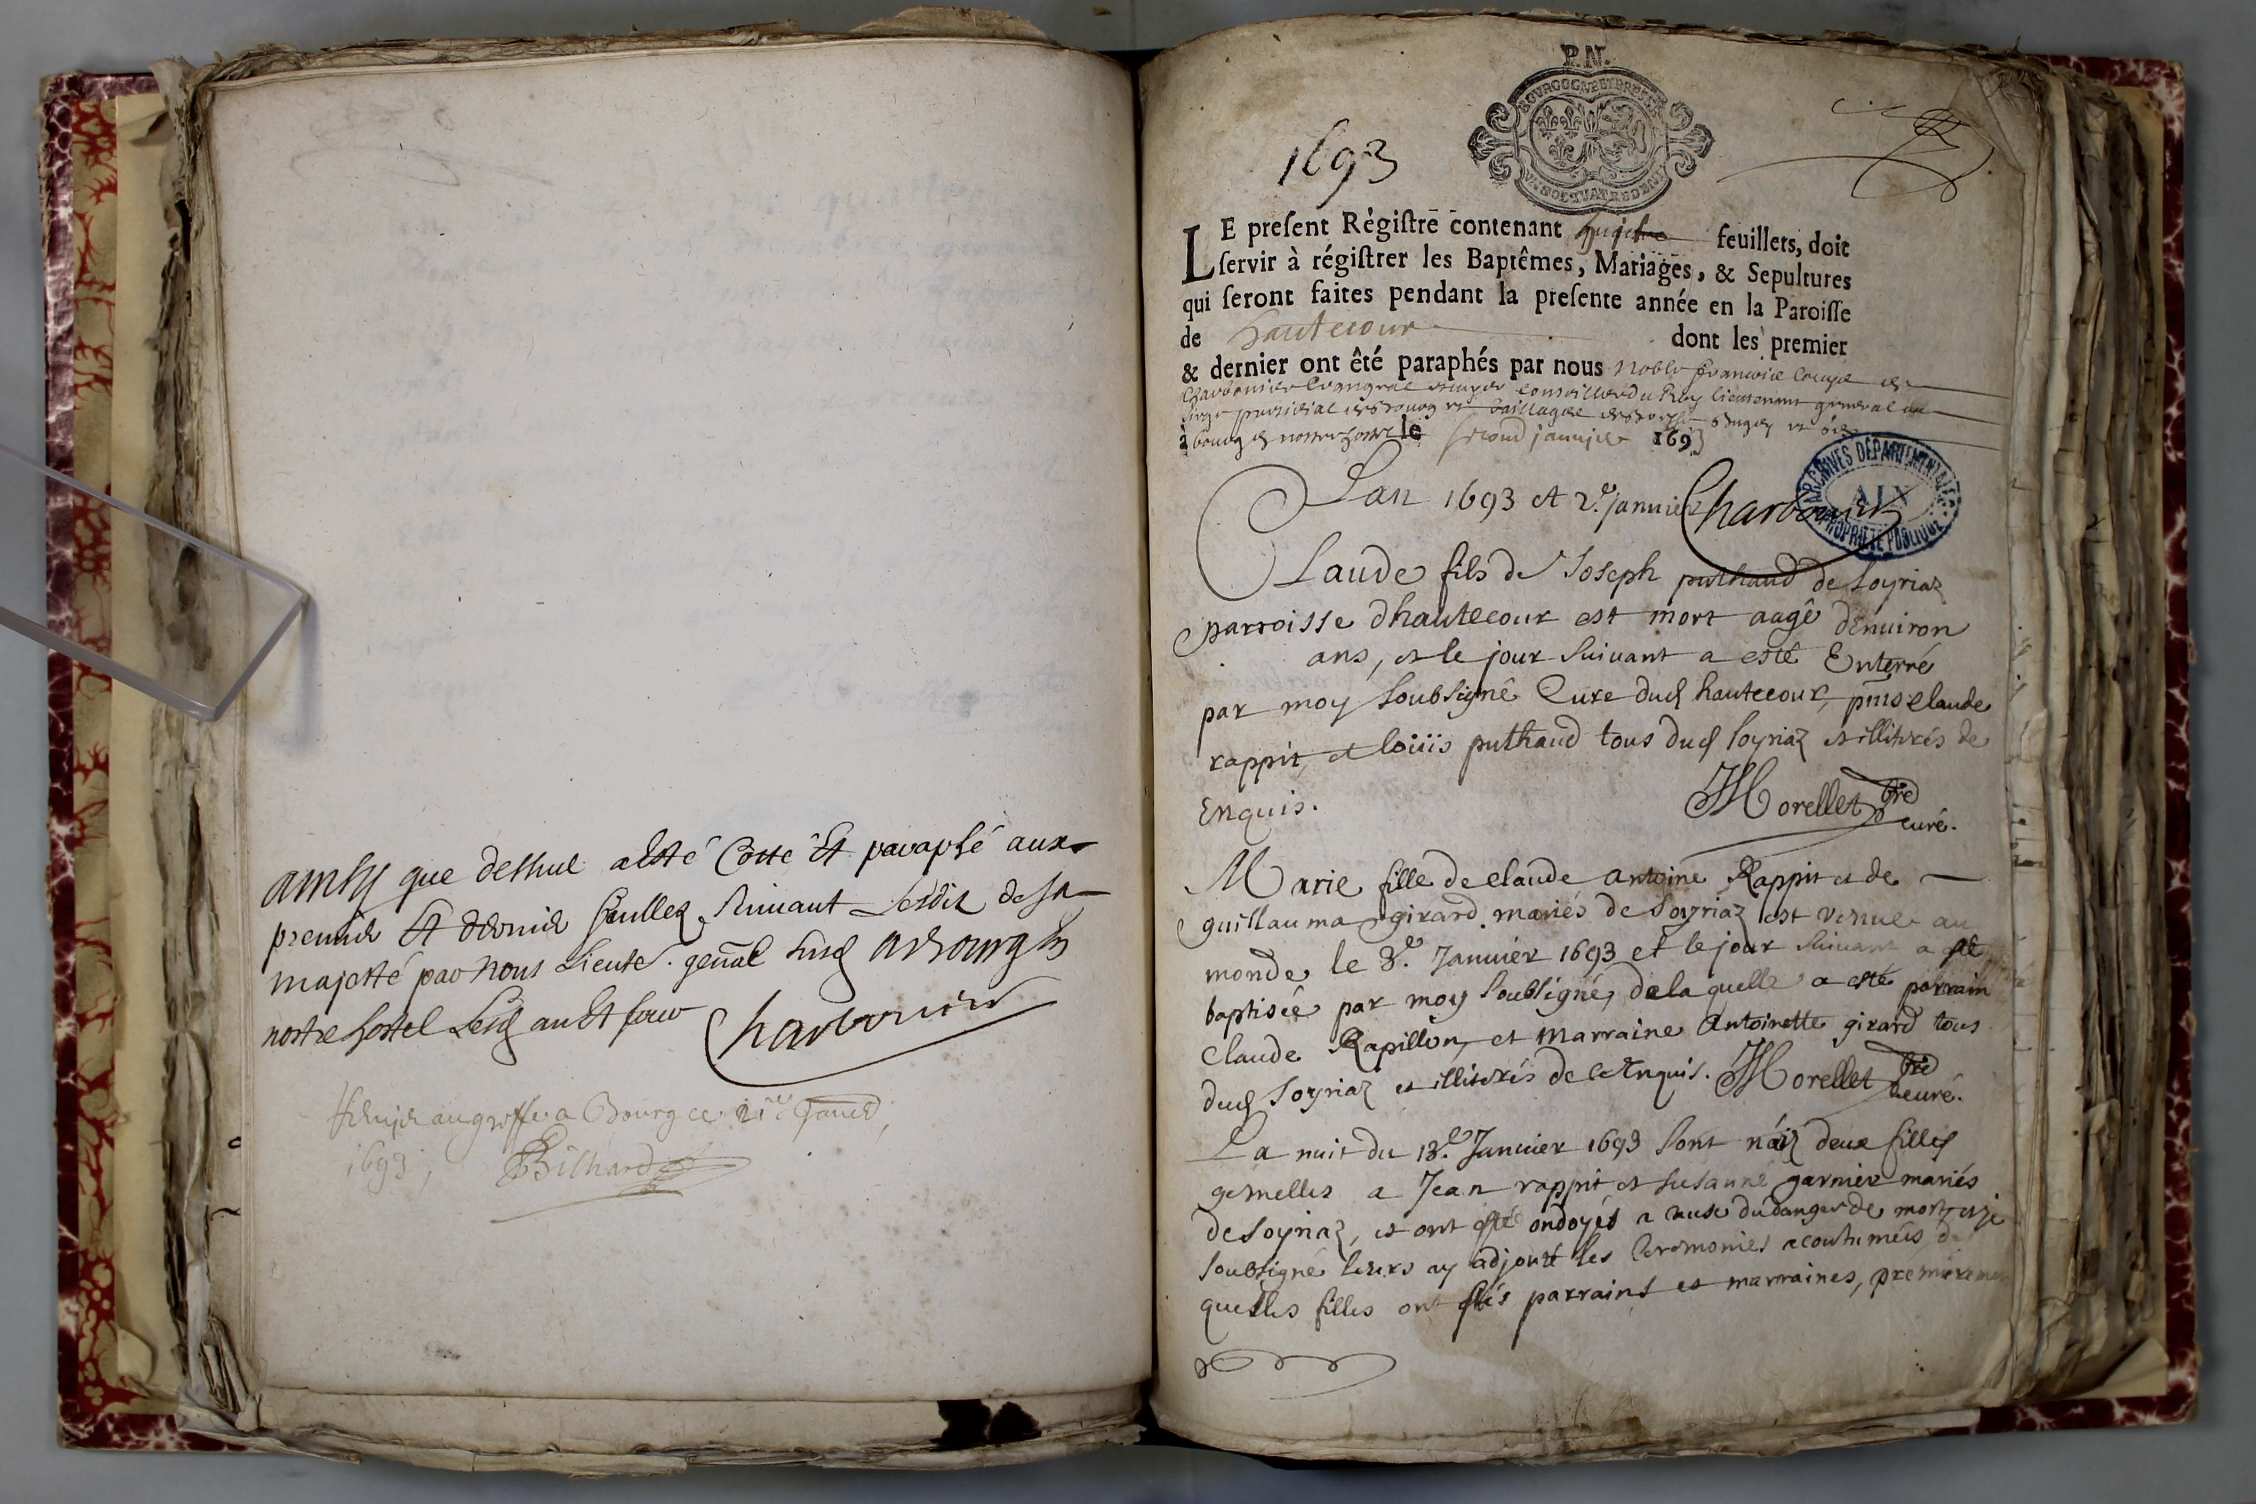 ainsy que dessus a esté Cotté Et paraphé aux
premier Et dernier feuillez suivant Lesdit de sa
majesté par nous Lieute. genal susd a Bourg En
nostre hostel Lesd an Et jour Charbonier
au greffe a Bourg ce 21e
1693, Billiard
P.N.
BOURGOGNE ET BRESSE
1693
LE present Régistre contenant feuillets, doit
servir à régistrer les Baptêmes, Mariages, & Sepultures
qui seront faites pendant la presente année en la Paroisse
de hautecour dont les premier
& dernier ont été paraphés par nous noble francois
Charbonier escuyer conseiller du Roy lieutenant general au
siege presidial de Bourg et bailliage de bresse bugey et
à bourg en nostre hostel le second janvier 1693
Lan 1693 et 2e. Janvier Charbonier
ARCHIVES DÉPARTEMENTALES
AIN
PROPRIÉTÉ PUBLIQUE
Claude fils de Joseph puthaud de soyriaz
parroisse dhautecour est mort aagé denuiron
ans, et le jour suivant a esté Enterré
par moy soubsigné Curé dud hautecour, pnts claude
rappit, et loüis puthaud tous dud soyriaz et illiterés de
Enquis. Morellet pbre
curé.
Marie fille de claude antoine Rappit et de
guillauma girard mariés de soyriaz est venue au
monde le 8e. Janvier 1693 et le jour suivant a esté
baptisée par moy soubsigné, de laquelle a esté parrain
Claude Rapillon, et marraine Antoinette girard tous
dud soyriaz et illiterés de ce Enquis. Morellet pbre
curé.
La nuit du 13e. Janvier 1693 sont néez deux filles
gemelles a Jean rappit et susanne garnier mariés
de soyriaz, et ont esté ondoyés a cause du danger de mort et je
soubsigné leurs ay adjouté les Ceremonies acoutumées, des
quelles filles ont estés parrains et marraines, premierement